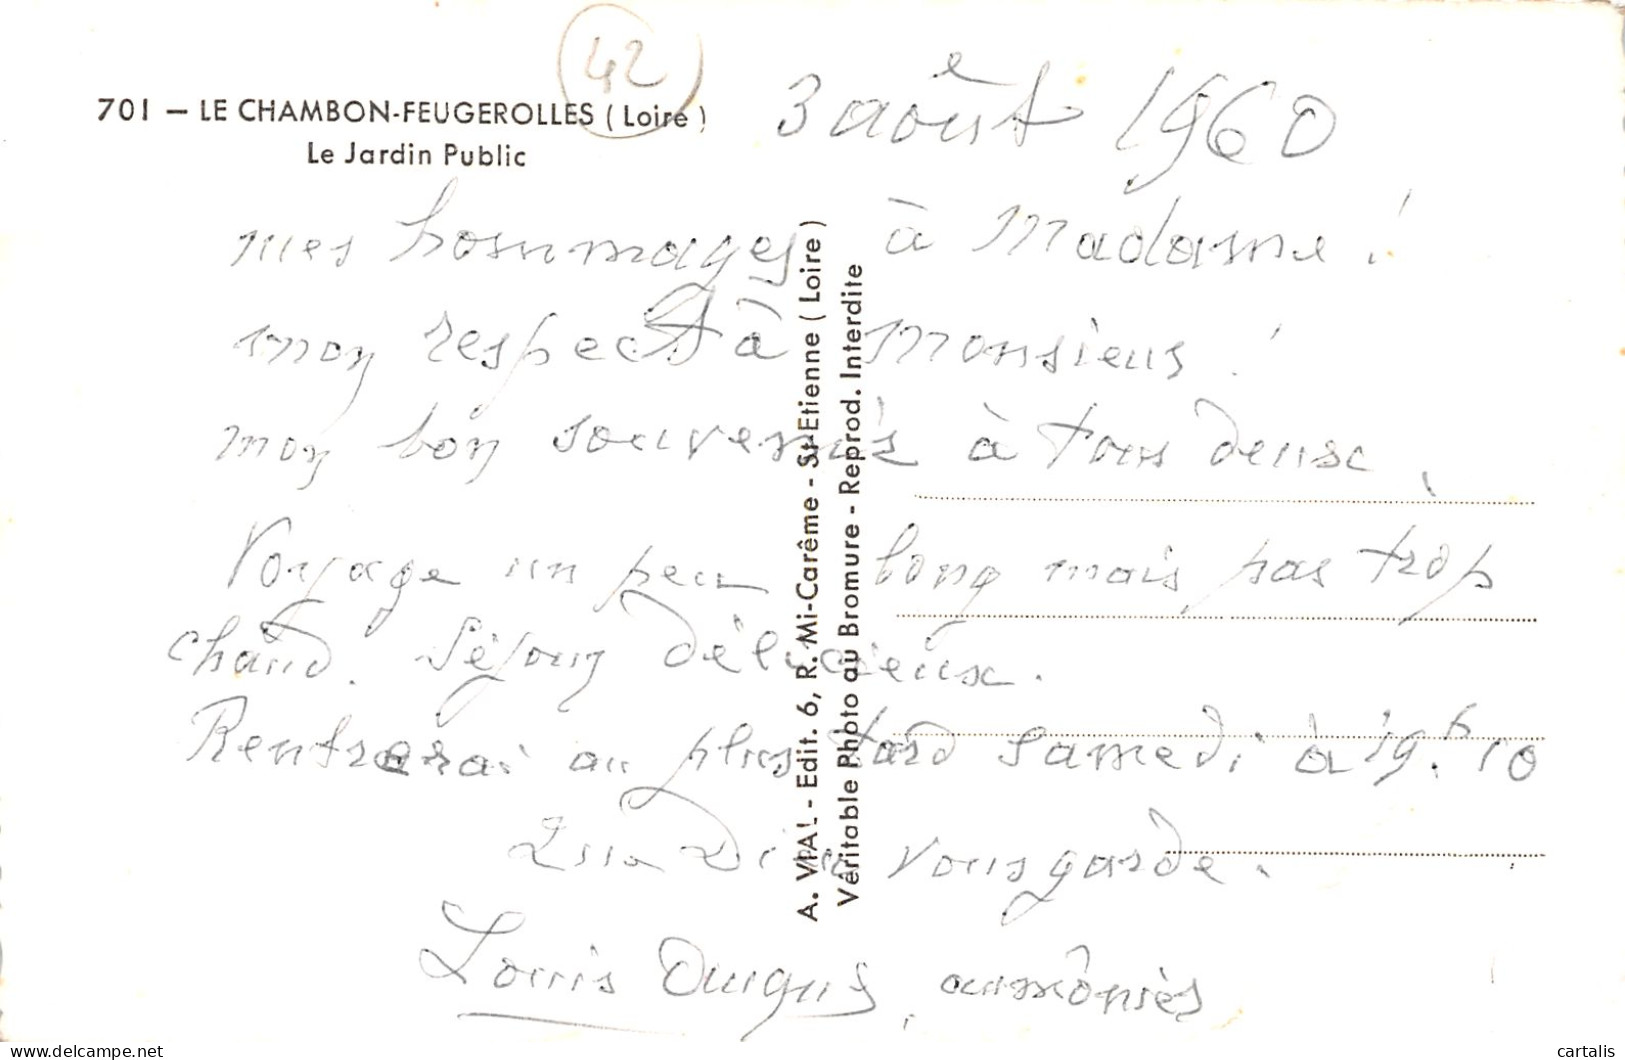 42
701 – LE CHAMBON-FEUGEROLLES ( Loire )
Le Jardin Public
3 août 1960
mes hommages à Madame !
mon respect à Monsieur !
mon bon souvenir à tous deux.
Voyage un peu long mais pas trop
chaud. Séjour délicieux.
Rentrerai au plus tard samedi à 19h.10
Dieu vous garde.
Louis, aumônier
A. VIAL - Edit. 6, R. Mi-Carême - St-Etienne ( Loire )
Véritable Photo au Bromure - Reprod. Interdite
cartalis